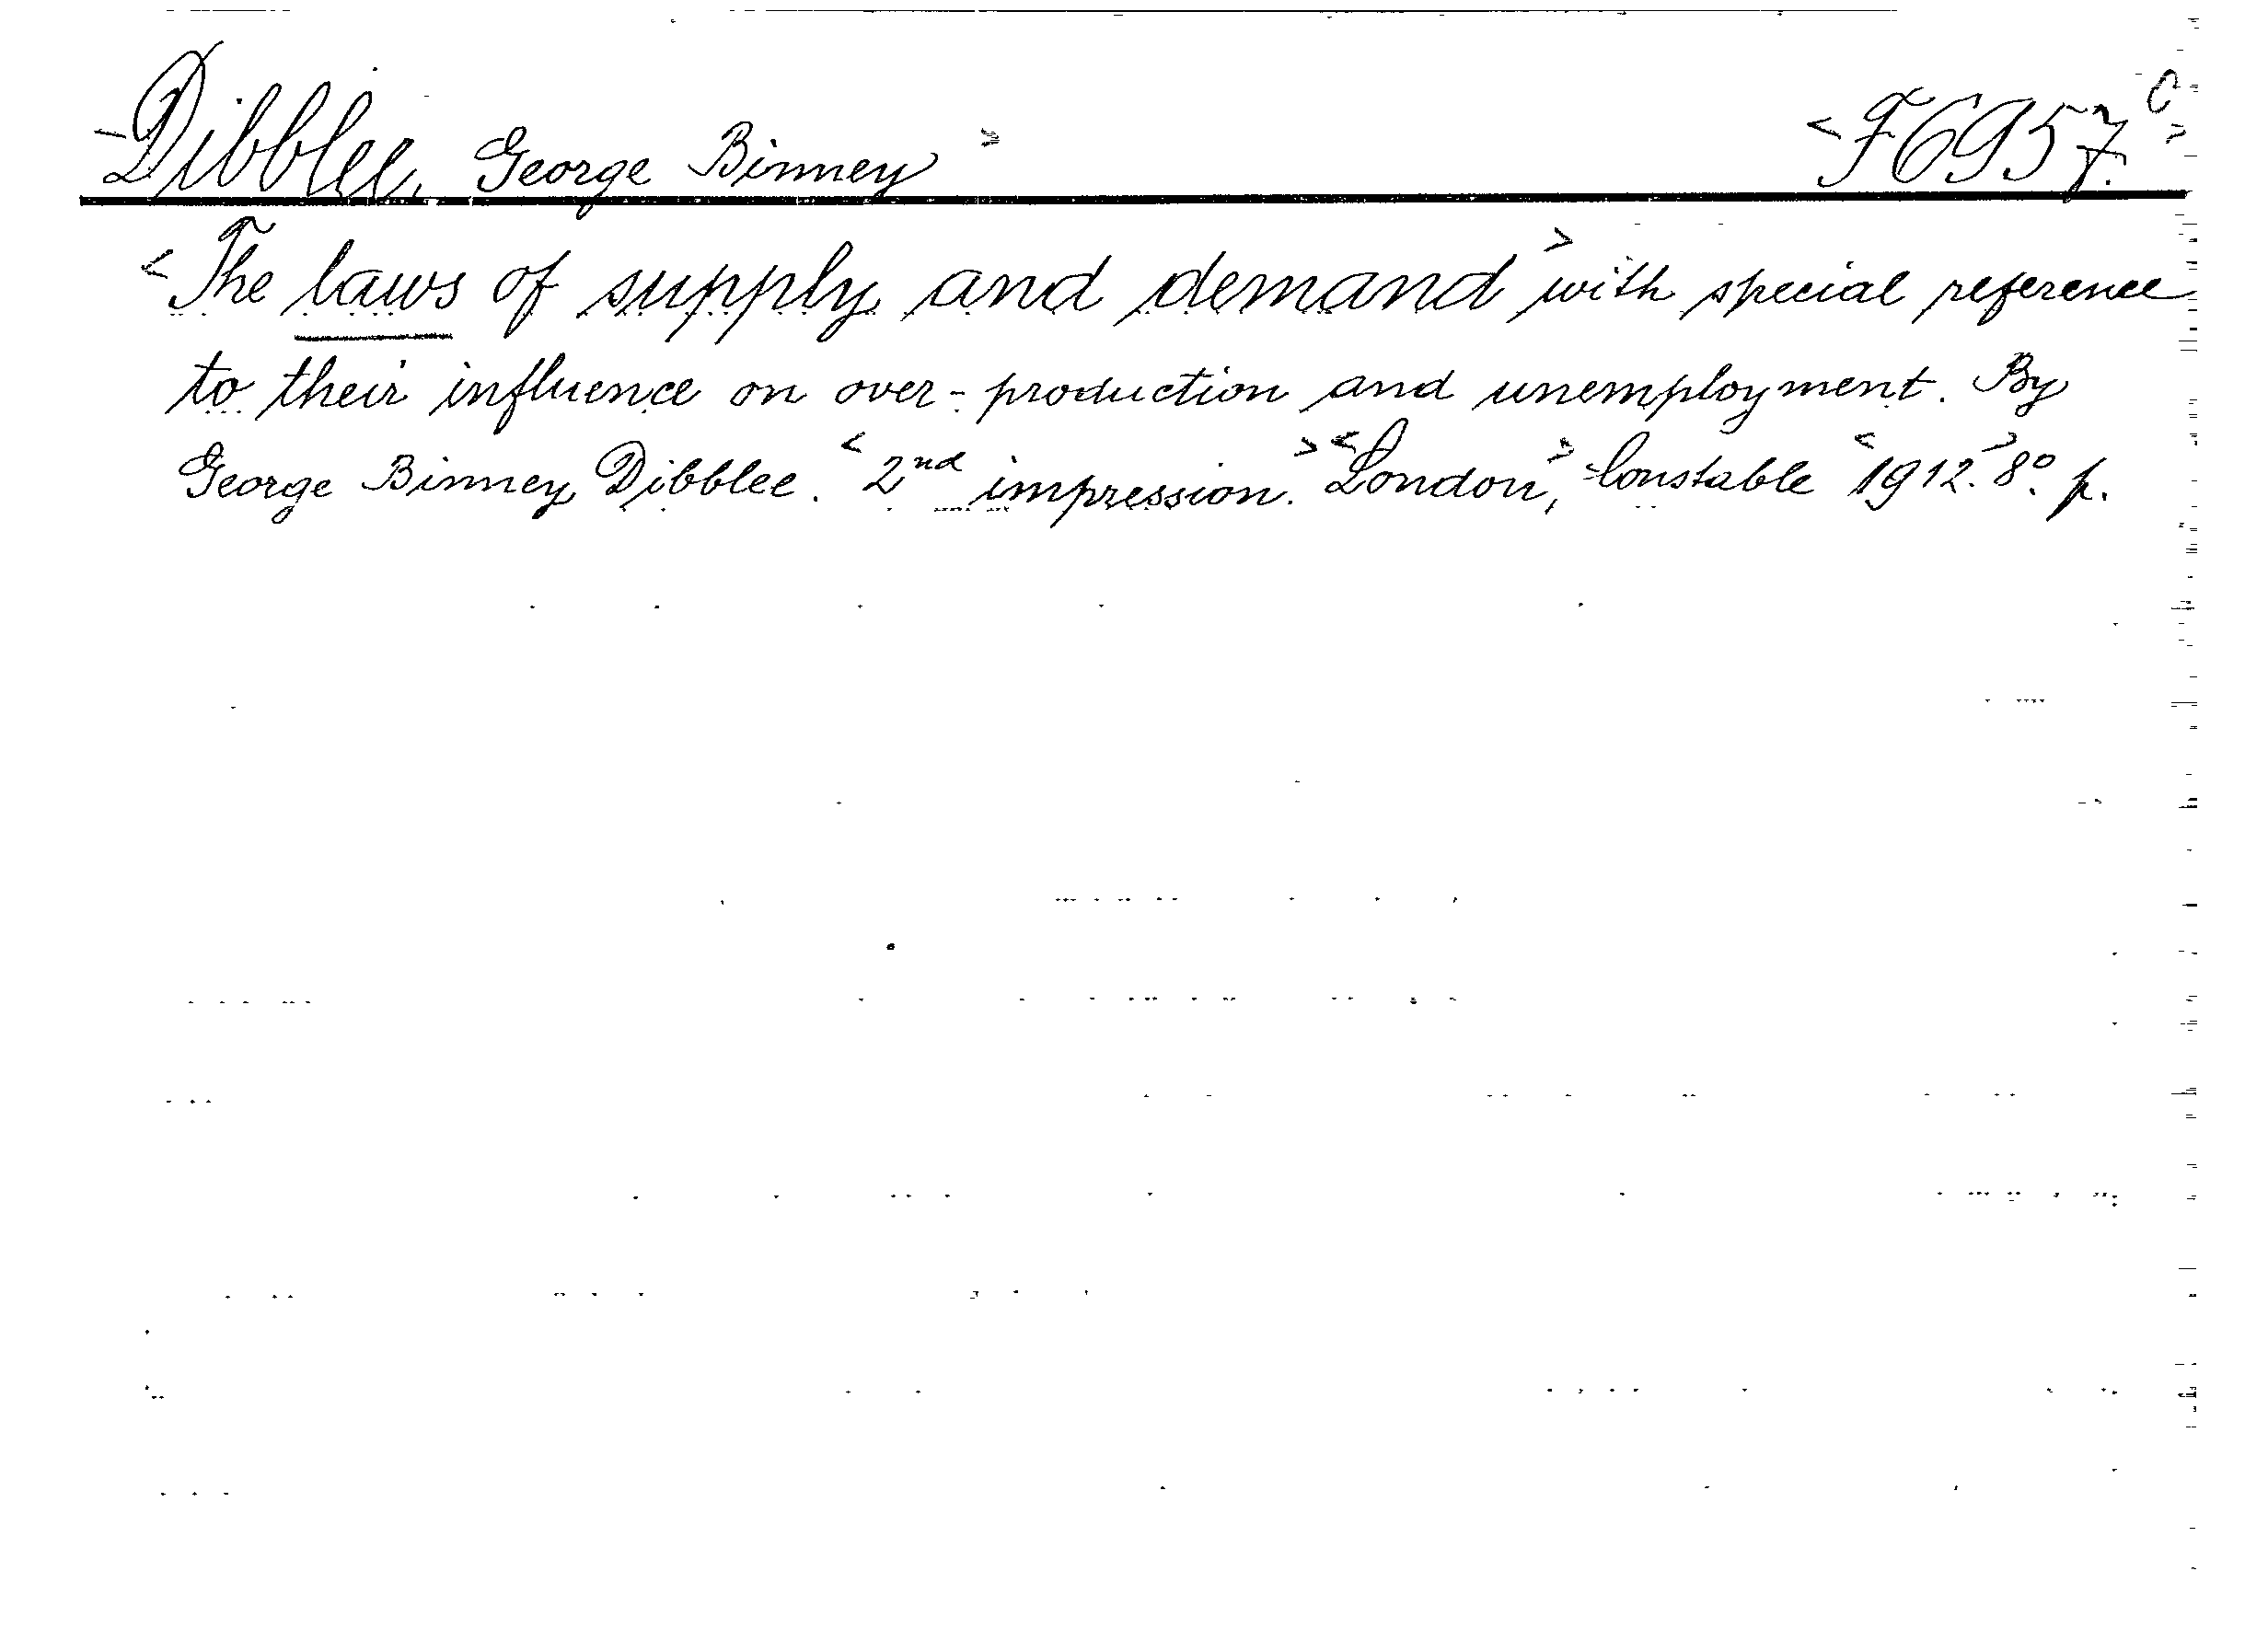 <Dibblee, George Binney> <F6957.C>
<The laws of supply and demand> with special reference
to their influence on over-production and unemployment. By
George Binney Dibblee. <2nd impression.> <London>, Constable <1912.> 8º. p.